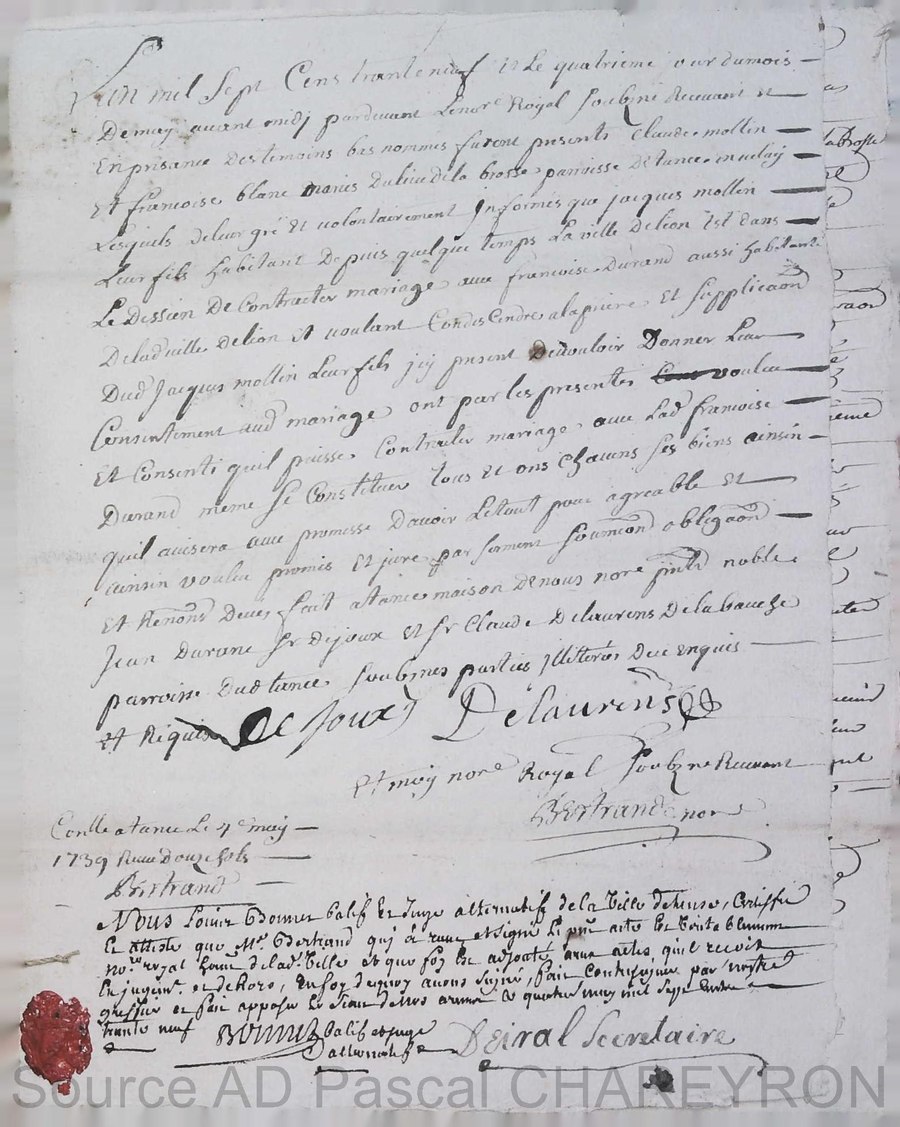 L'an mil Sept Cens trante neuf et Le quatrieme jour du mois
De may avant midj pardevant Le nore Royal Soubzne Recevant et
En presance des temoins bas nommes furent presents Claude mollin
et francoise blanc maries du lieu de la brosse parroisse de tance en velay
Lesquels de leur gré et volontairement Informes que jacques mollin
Leur fils habitant Depuis quelque temps La ville de lion Est dans
Le Dessien De Contracter mariage avec francoise Durand aussi habitant
De lad ville de lion et voulant Condescendre a la priere et Supplicaon
Dud Jacques mollin Leur fils jcy present De vouloir Donner Leur
Consentement aud mariage ont par les presentes voulu
Et Consenti quil puisse Contracter mariage avec Lad francoise
Durand meme Se Constituer tous et ses biens ainsin
quil avisera avec promesse Davoir Le tout pour agreable et
ainsin voulu promis et juré par serment Soumions obligaons
Et Renons Deues fait a tance maison De nous nore pnts noble
Jean Durane Sr De joux et Sr Claude Delaurens De la bauche
parroisse Dud tance Soubznes parties jlliterés De ce enquis
et Requis De Joux Delaurens
Et moy nore Royal Soubzne Recevant
Bertrand nore
Conlle a tance Le 4e may
1739 Receu Douze sols
Bertrand
Nous Louis Bonnet balif et Juge alternatif de la Ville de tence, Certiffie
et atteste que Mr Bertrand qui à receu et signé Le pnt acte est veritablement
nore royal de lad. Ville et que foy est adjoutée aux actes, quil recoit
En jugemt et dehors, En foy de quoy avons signé, fait Contresigner par nostre
greffier et fait appose le sceau de nos armes ce quatre may mil sept cents
trante neuf Bonnet balif et juge
alternatif Deiral Secretaire
Source AD Pascal CHAREYRON